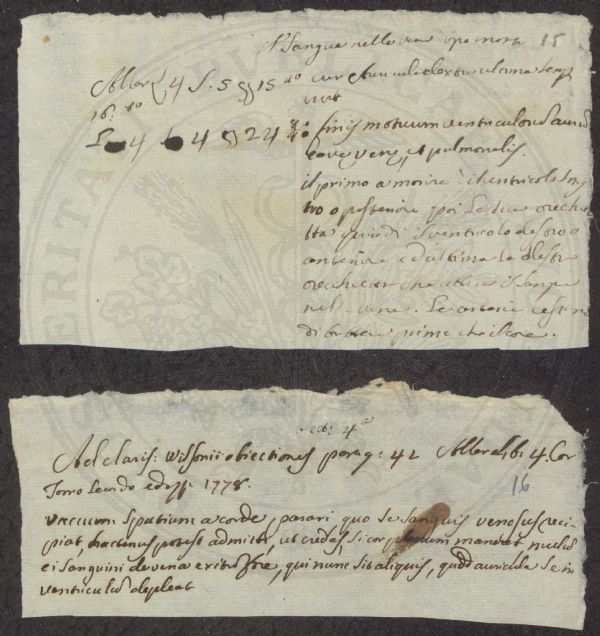 Sangue nelle vene dopo morte 15
Aller. L 4 S. 5 § 15 40 cur Auricula dextra ultima semp
16: 80
vivit
L 4 4 § 24 finis motuum ventriculorum auric
cave vene, et pulmonalis.
il primo a morire è il ventricolo sinis
tro o posteriore poi la sua orechie
tta quindi il ventricolo destro o
anteriore ed ultima la destra
che attira il sangue
nelle vene. Le arterie cessano
di battere prima che il core.
Sect: 4a
Ad clariss: Wilsonii obiectiones parag: 42 Aller Lib: 4. Cor
Tomo secundo 1778.
16
vacuum spatium a corde parari quo se sanguis venosus reci
piat, hactenus potest admitti, ut credas, si cor plenum maneat nullum
ei sanguini de vena iter, qui nunc sit aliquis, quod auricula se in
ventriculum depleat